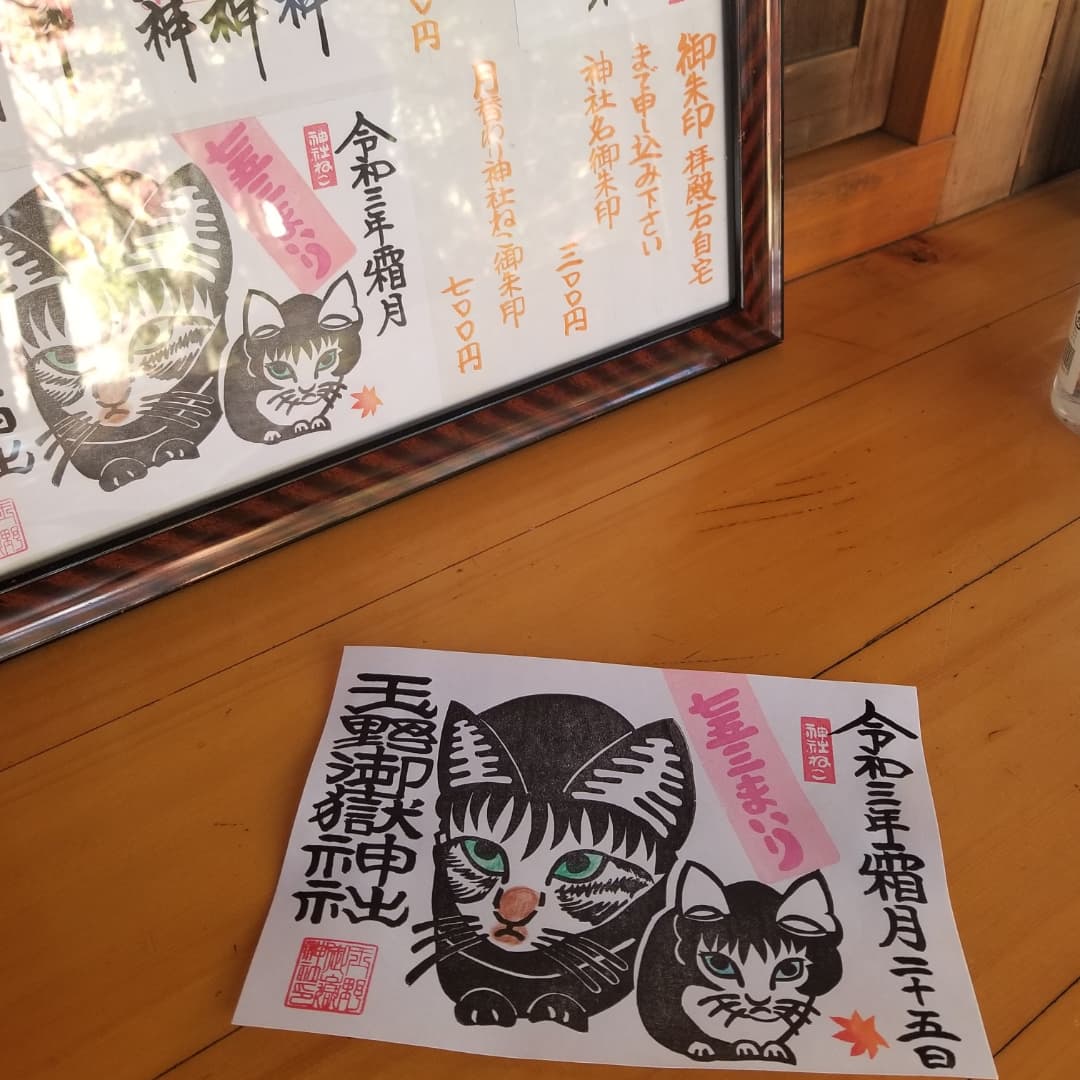 御朱印 拝殿右自宅
まで申し込み下さい
神社名御朱印
三〇〇円
月替わり神社ねこ御朱印
七〇〇円
円
神
神
神
令和三年霜月
神社ねこ
七五三まいり
令和三年霜月二十五日
神社ねこ
七五三まいり
玉野御嶽神社